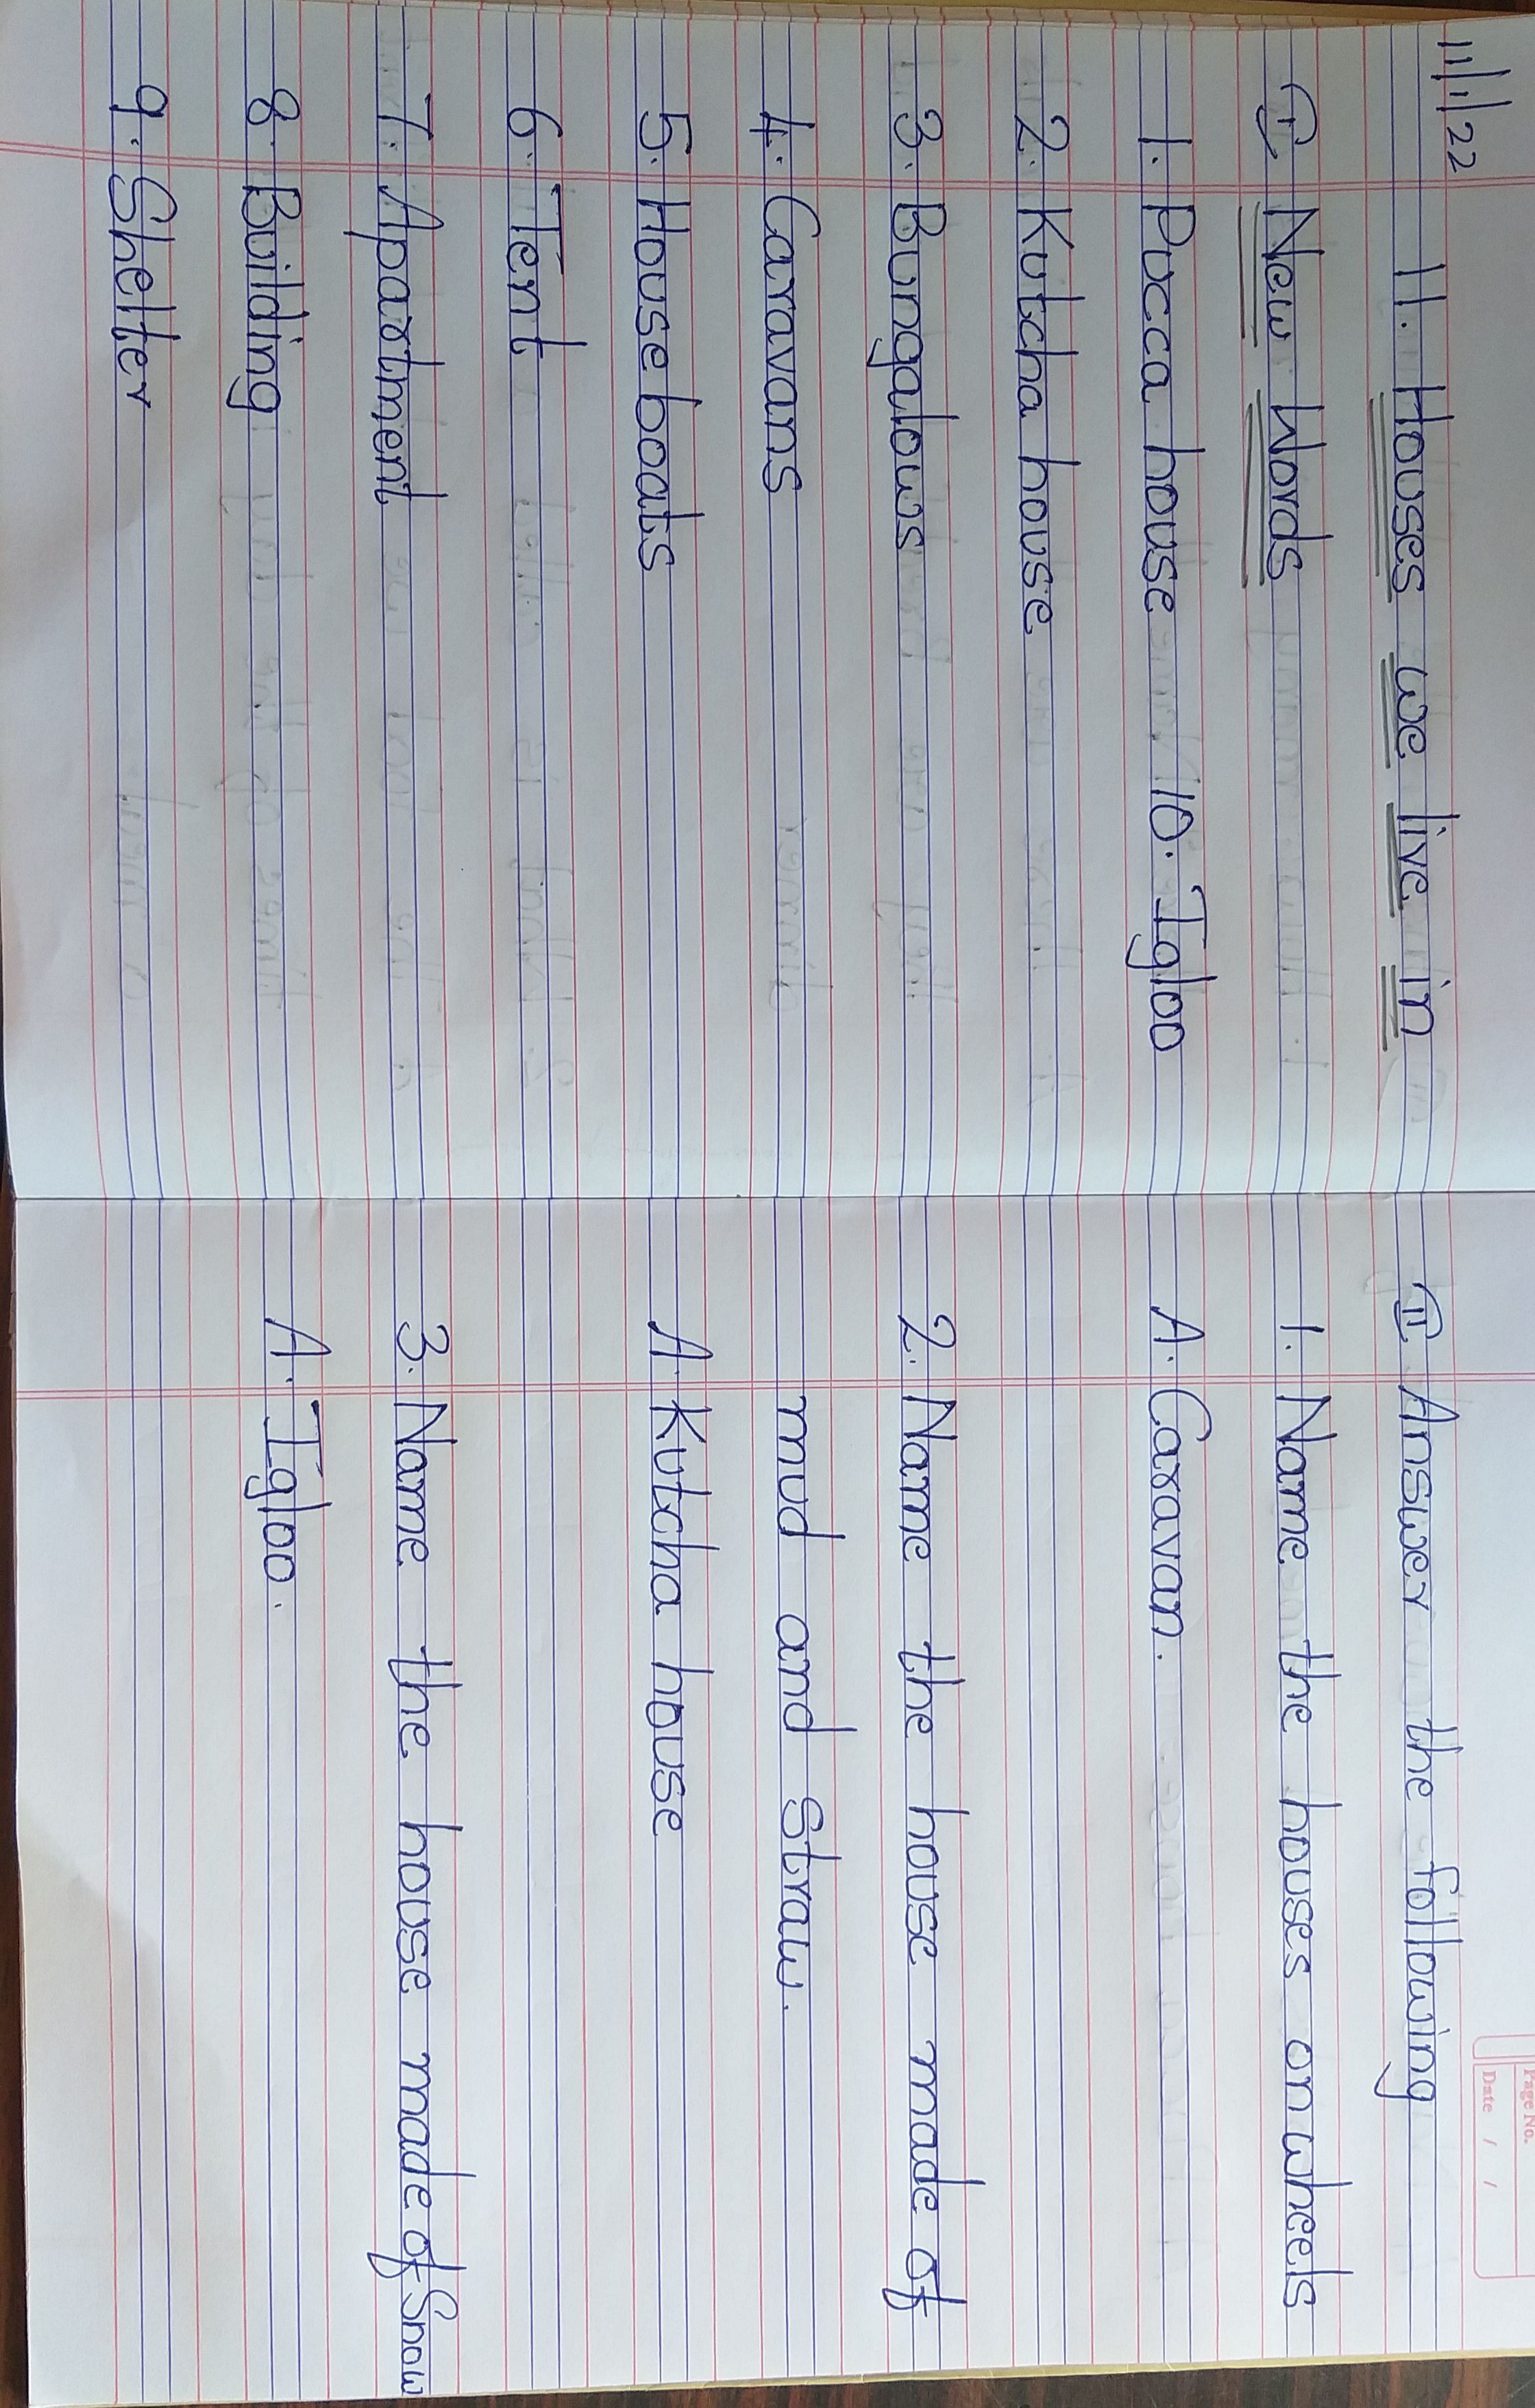 11/1/22
11. Houses we live in
I New Words
1. Pucca house 10. Igloo
2. Kutcha house
3. Bungalows
4. Caravans
5. House boats
6. Tent
7. Apartment
8. Building
9. Shelter
Page No.
Date / /
II Answer the following
1. Name the houses on wheels
A. Caravan.
2. Name the house made of
mud and straw.
A. Kutcha house
3. Name the house made of Snow
A. Igloo.